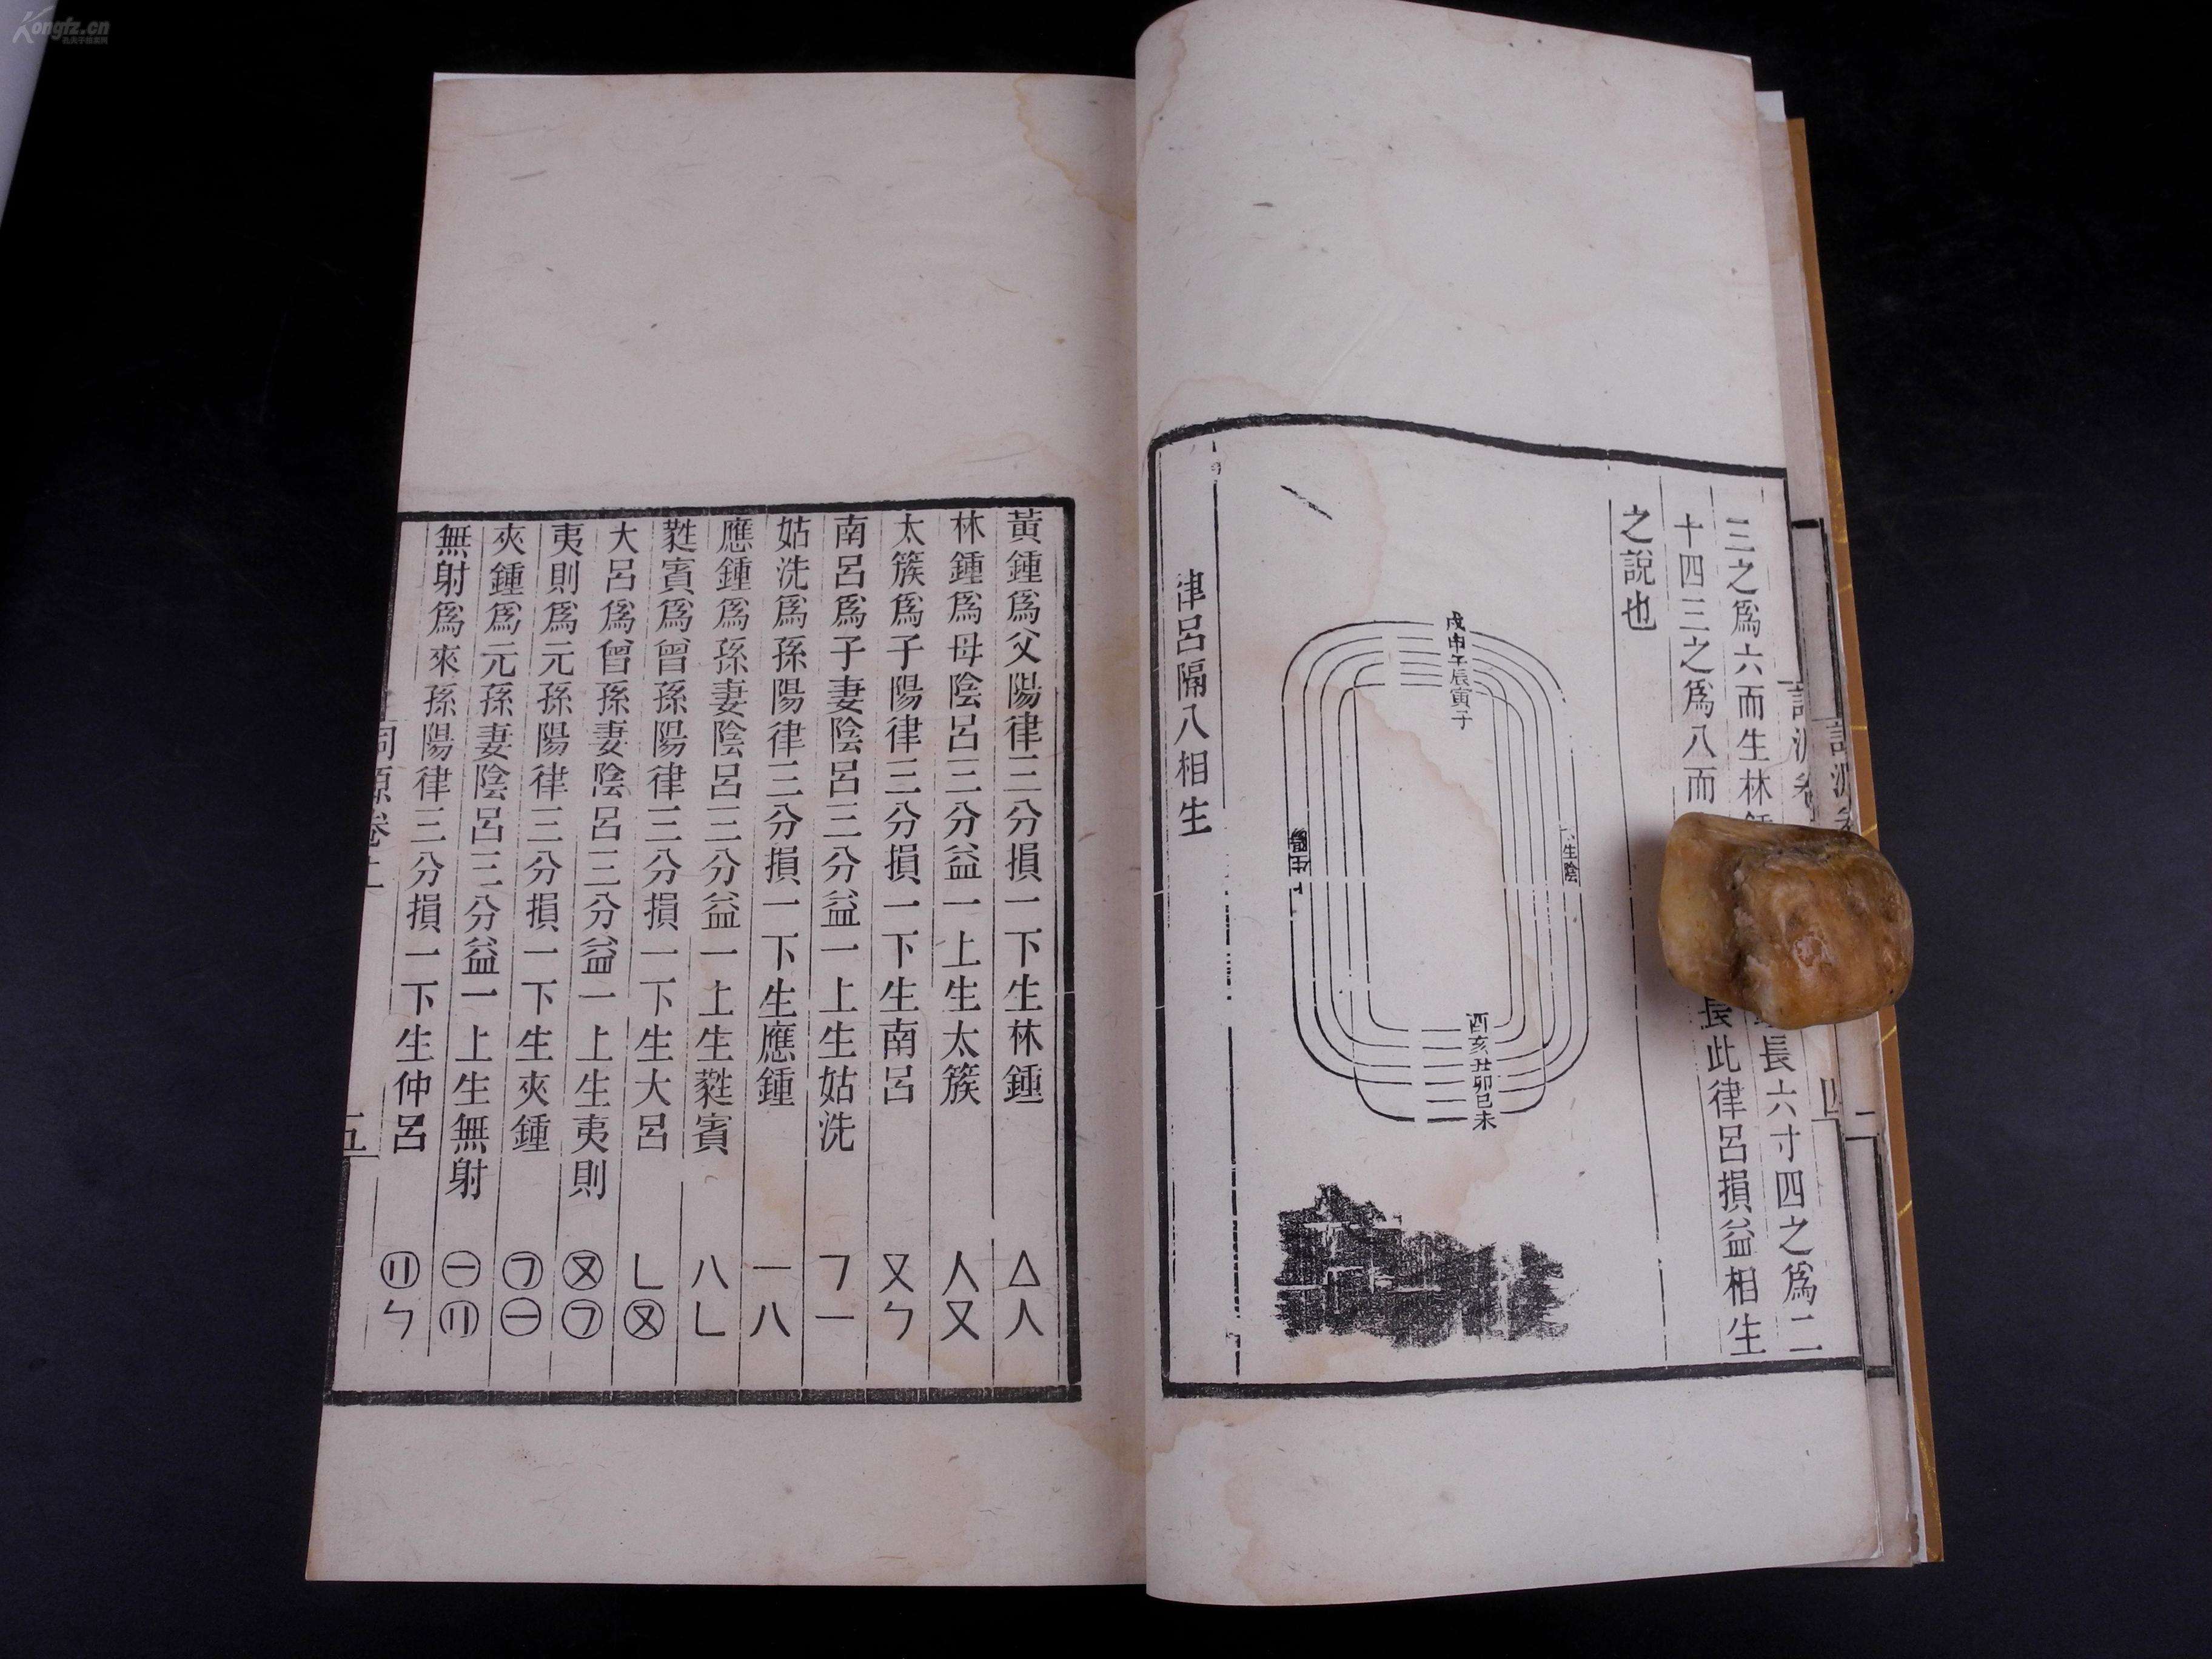 Kongfz.cn
孔夫子旧书网
三之爲六而生林
長六寸四之爲二
十四三之爲八而
長此律呂損益相生
之說也
戌申午辰寅子
生陰
酉亥丑卯巳未
律呂隔八相生
四
黃鍾爲父陽律三分損一下生林鍾 △人
林鍾爲母陰呂三分益一上生太簇 人又
太簇爲子陽律三分損一下生南呂 又ㄣ
南呂爲子妻陰呂三分益一上生姑洗 ㄱ一
姑洗爲孫陽律三分損一下生應鍾 一八
應鍾爲孫妻陰呂三分益一上生蕤賓 八ㄴ
蕤賓爲曾孫陽律三分損一下生大呂 ㄴ㊋
大呂爲曾孫妻陰呂三分益一上生夷則
夷則爲元孫陽律三分損一下生夾鍾
夾鍾爲元孫妻陰呂三分益一上生無射
無射爲來孫陽律三分損一下生仲呂
詞源卷上
五